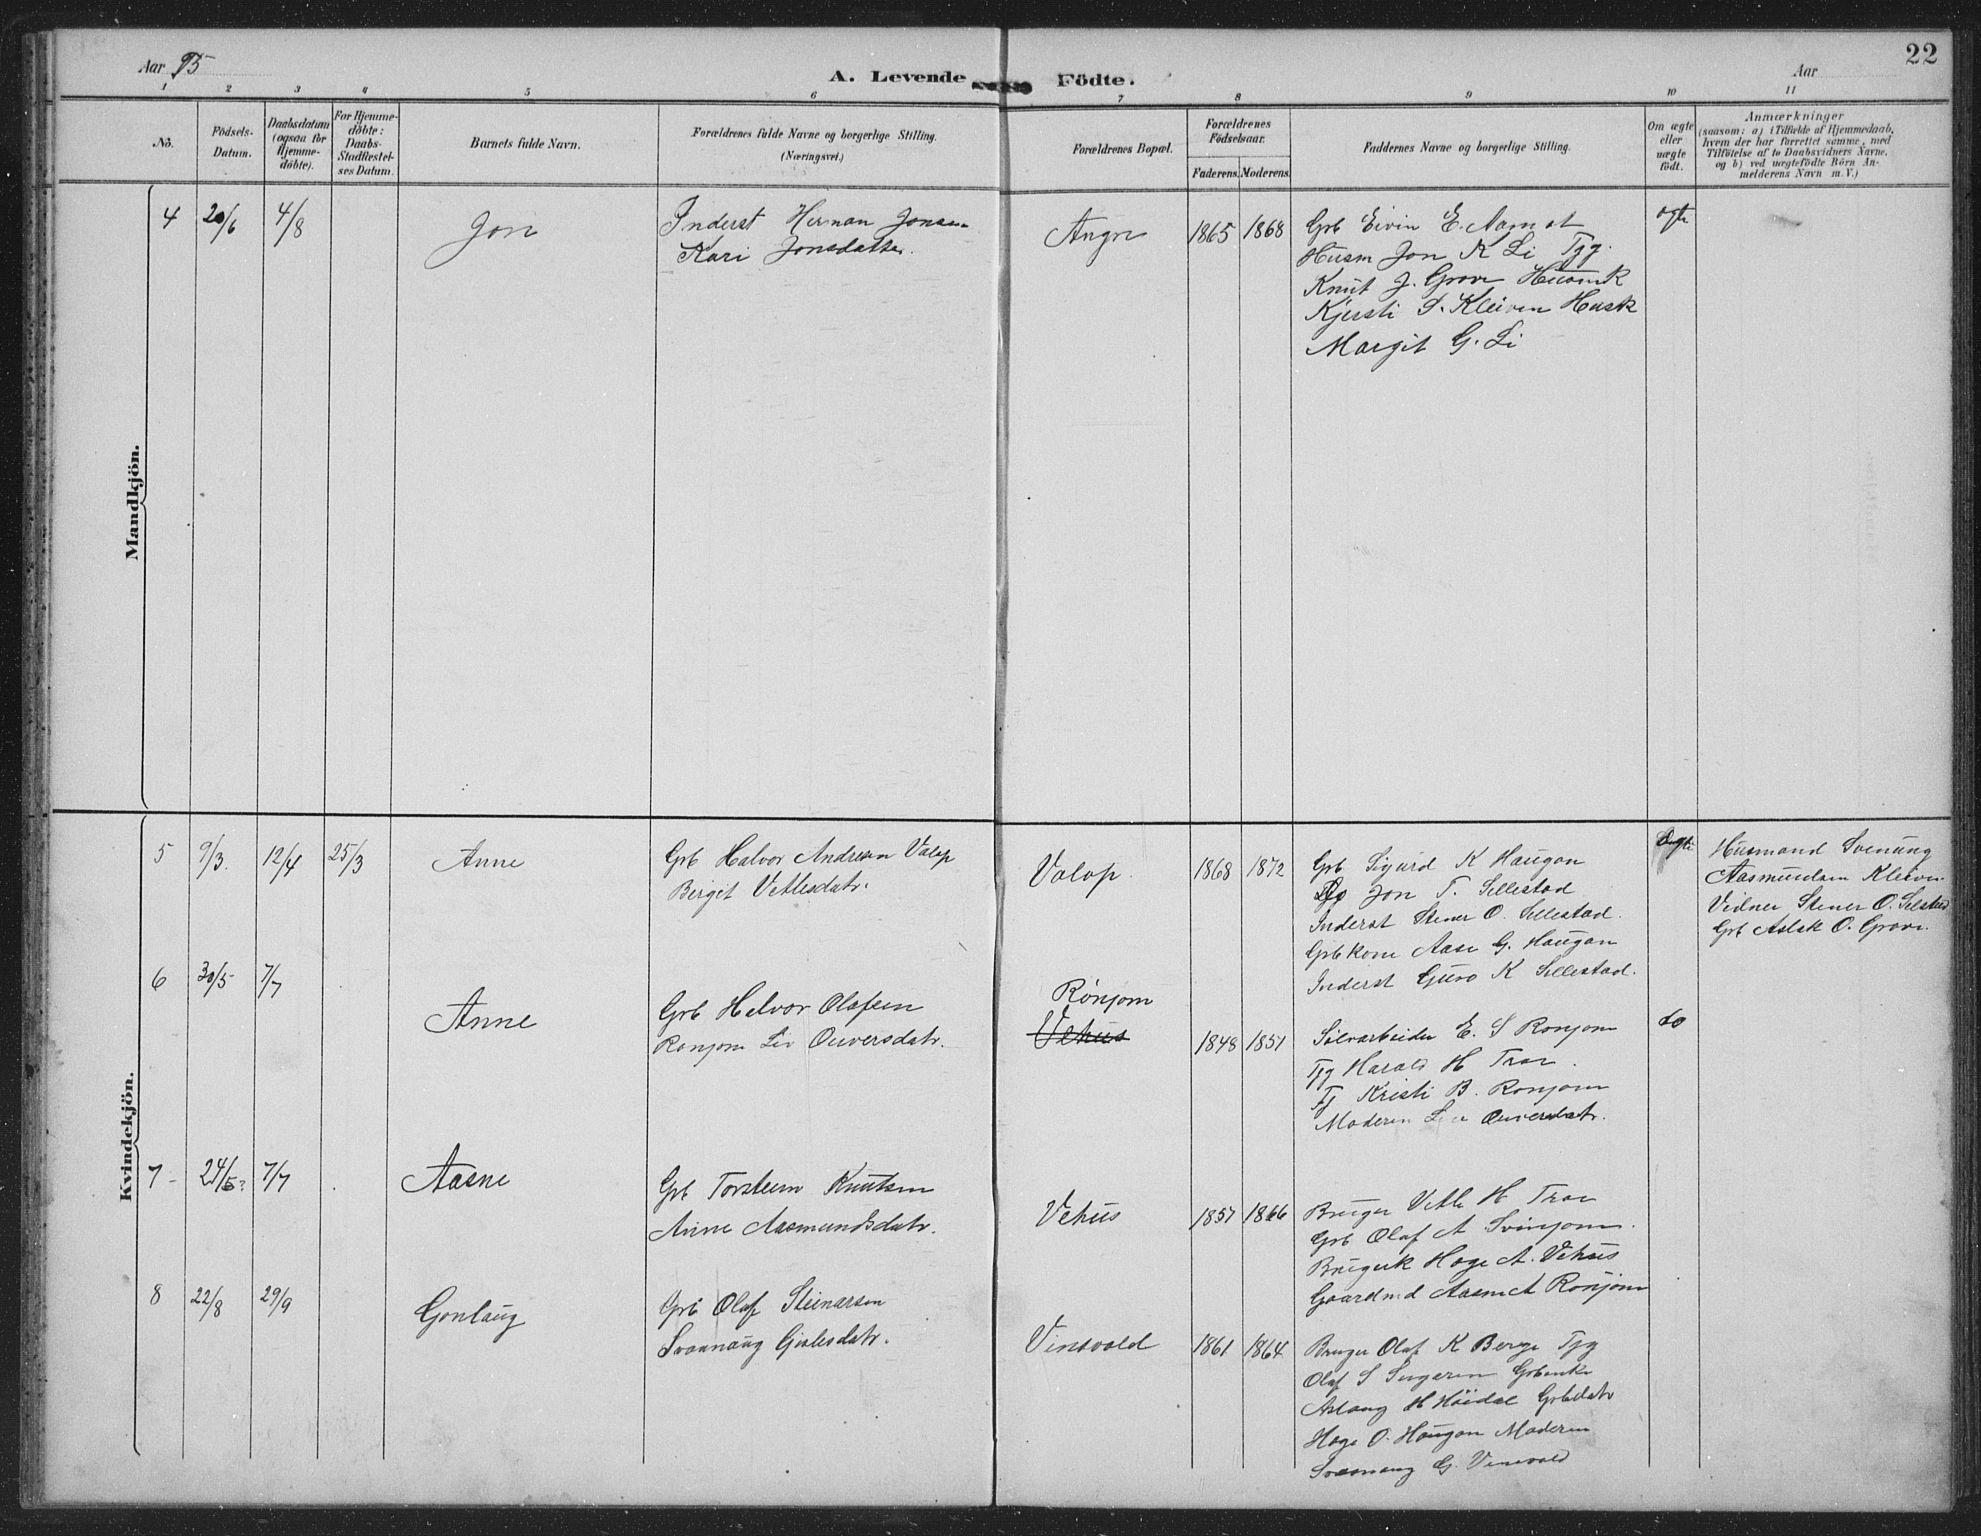 22
Aar 95
A. Levende Födte.
Aar
1 2 3 4 5 6 7 8 9 10 11
No.
Födsels-
Datum.
Daabsdatum
(ogsaa for
Hjemme-
döbte).
For Hjemme-
döbte:
Daabs-
Stadfæstel-
ses Datum.
Barnets fulde Navn.
Forældrenes fulde Navne og borgerlige Stilling.
(Næringsvei.)
Forældrenes Bopæl.
Forældrenes
Födselsaar.
Faderens. Moderens.
Faddernes Navne og borgerlige Stilling.
Om ægte
eller
uægte
födt.
Anmærkninger
(saasom: a) i Tilfælde af Hjemmedaab,
hvem der har forrettet samme, med
Tilföielse af to Daabsvidners Navne,
og b) ved uægtefödte Börn An-
melderens Navn m. V.)
Mandkjön.
4 20/6 4/8
Jon
Inderst Herman Jonsen
Kari Jonsdatter.
Angre
1865 1868
Grb Eivin E. Aamot
Husm Jon K Li Tjg.
Knut J. Grove HusmK
Kjersti S. Kleiven Husk
Margit G. Li
ægte
Kvindekjön.
5 9/3. 12/4 25/3
Anne
Grb Halvor Andresen Valop
Berget Vetlesdatr.
Valop.
1868 1872
Grb Sigurd K Haugan
Do Jon T. Sellestad
Inderst Stener O. Sellestad.
Grbkone Aase G. Haugan
Inderst Guro K Sellestad.
Ægte
Husmand Svenung
Aasmundsen Kleiven
Vidner Stener O. Selstad
Grb Aslak O. Grove.
6 30/5 7/7
Anne
Grb Halvor Olafsen
Ronjom Liv Ouversdatr.
Rönjom
Vehus
1848 1851
Sölvarbeider E. S Ronjom
Tjg Harald H Traa.
Tj Kristi B. Ronjom
Moderen Liv Ouversdatr.
do
7 24/5? 7/7
Aasne
Grb Torsteen Knutsen
Anne Aasmundsdatr.
Vehus
1857 1866
Bruger Vetle H Traa
Grb Olaf A Svinjom.
Brugerk Hage A. Vehus
Gaardmd Aasm A Ronjom
8 22/8 29/9
Gonlaug
Grb Olaf Steinarsen
Svanaug Gislesdatr.
Vinsvald
1861 1864
Bruger Olaf K Berge Tjg
Olaf S Grbenke
Aslaug H Höidal Grbdatr
Hage O. Haugan Moderen
Svanaug G. Vinsvald